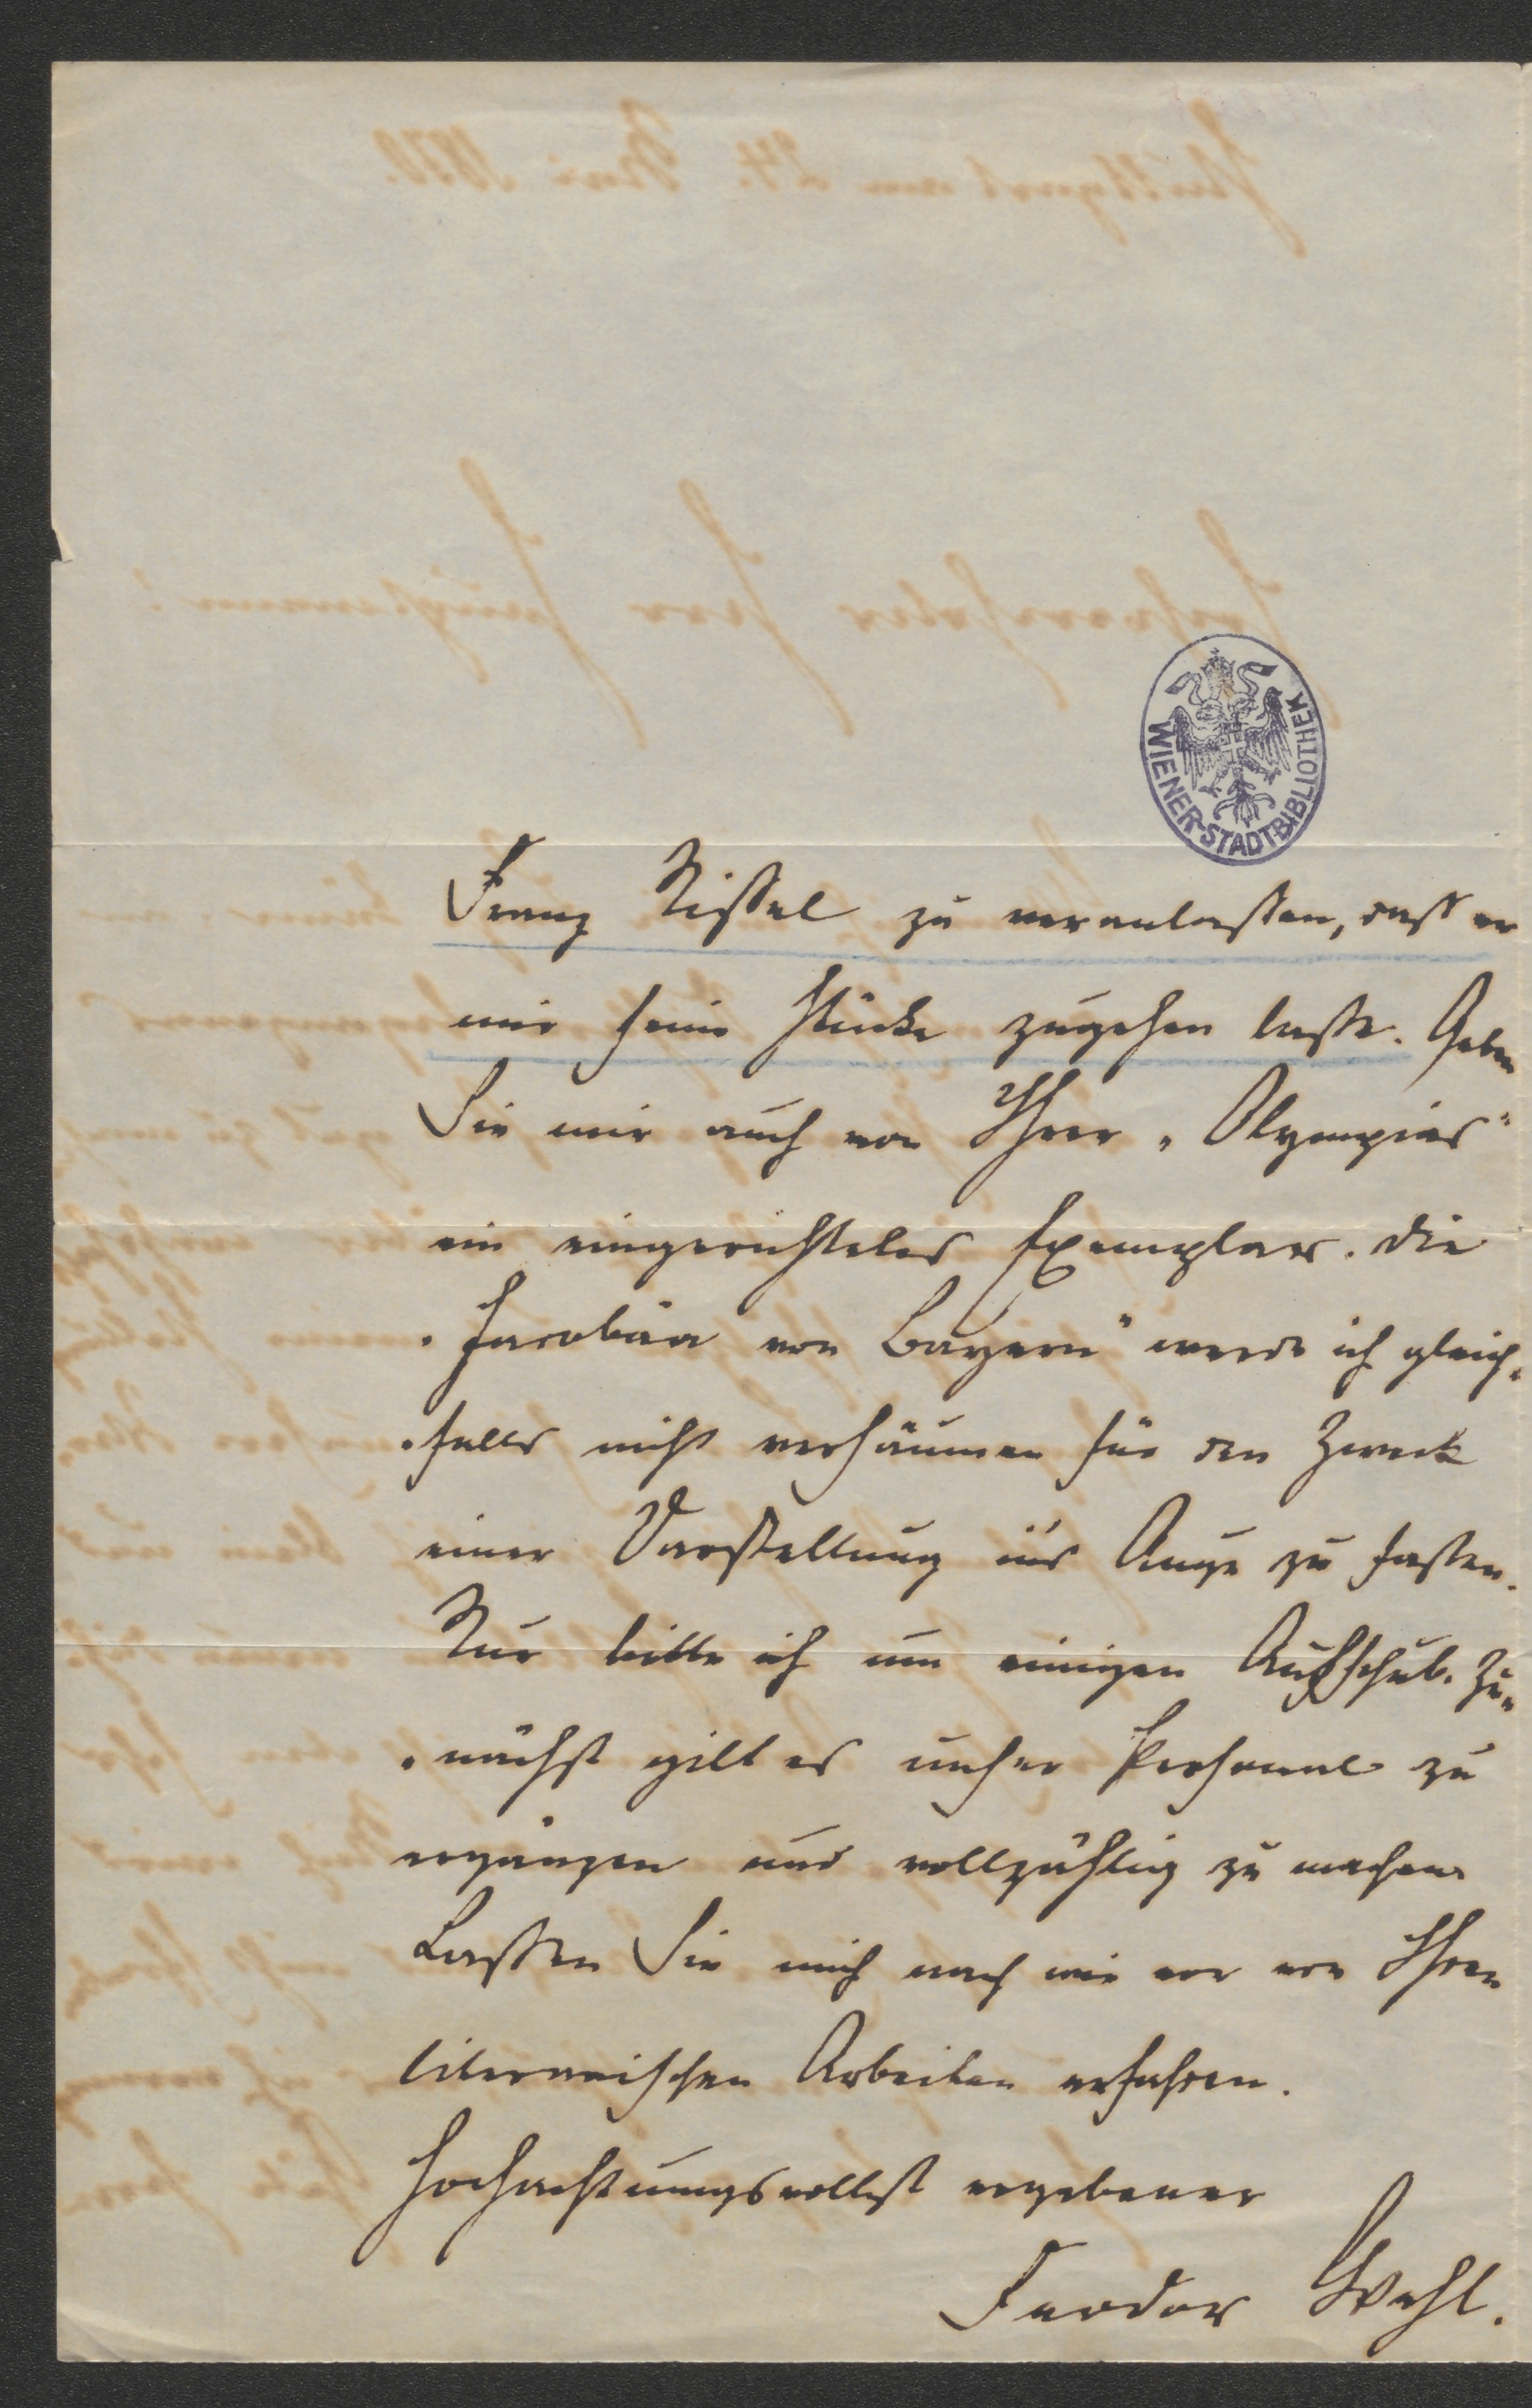 WIENER-STADT-BIBLIOTHEK
Franz Nissel zu veranlassen, dass er
mir seine Stücke zugehen lasse. Geben
Sie mir auch von Ihrer „Olympias"
ein eingerichtetes Exemplar. Die
„Jacobäa von Bayern" werde ich gleich-
-falls nicht versäumen für den Zweck
einer Darstellung in's Auge zu fassen.
Nur bitte ich um einigen Aufschub. Zu-
-nächst gilt es unser Personal zu
ergänzen und vollzählig zu machen.
Lassen Sie mich nach wie vor von Ihren
literarischen Arbeiten erfahren.
Hochachtungsvollst ergebener
Feodor Wehl.